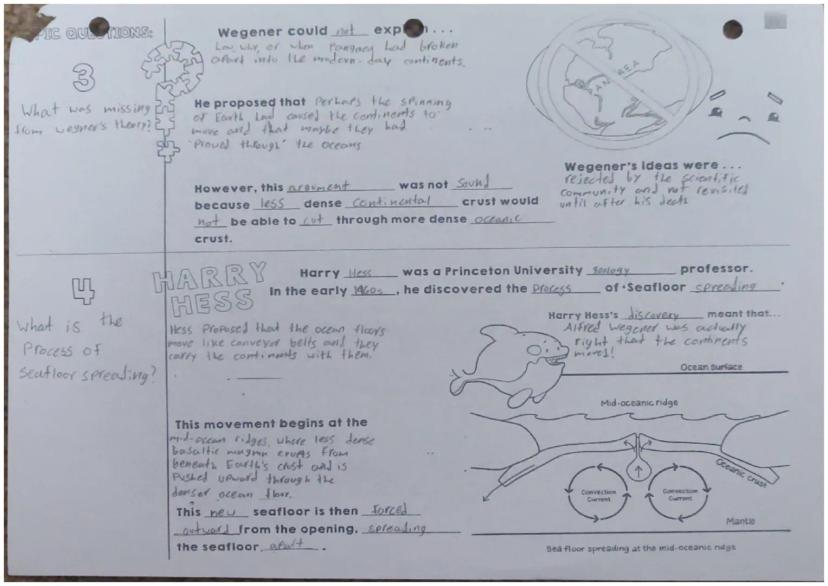 PIC QUESTIONS:
3
What was missing
from wegner's theory?
Wegener could not exp n . . .
how, why, or when Pangaea had broken
apart into the modern-day continents.
He proposed that Perhaps the spinning
of Earth had caused the continents to
move and that maybe they had
"Plowed through" the oceans
However, this argument was not sound
because less dense continental crust would
not be able to cut through more dense oceanic
crust.
PANGAEA
Wegener's ideas were . . .
rejected by the scientific
community and not revisited
until after his death
4
What is the
Process of
seafloor spreading?
HARRY
HESS
Harry Hess was a Princeton University geology professor.
In the early 1960s, he discovered the Process of Seafloor spreading.
Hess Proposed that the ocean floors
move like conveyor belts and they
carry the continents with them.
Harry Hess's discovery meant that...
Alfred Wegener was actually
right that the continents
moved!
Ocean Surface
Mid-oceanic ridge
This movement begins at the
mid-ocean ridges, where less dense
basaltic magma erupts from
beneath Earth's crust and is
Pushed upward through the
denser ocean floor.
This new seafloor is then forced
outward from the opening, spreading
the seafloor apart.
Oceanic crust
Convection
Current
Convection
Current
Mantle
Sea floor spreading at the mid-oceanic ridge